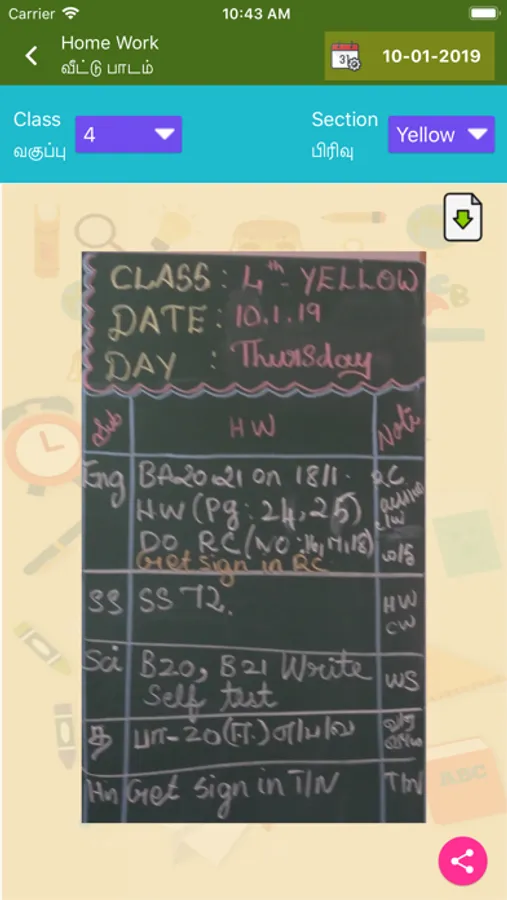 Carrier 10:43 AM
Home Work
வீட்டு பாடம்
10-01-2019
Class
வகுப்பு
4
Section
பிரிவு
Yellow
CLASS : 4th - YELLOW
DATE : 10.1.19
DAY : Thursday
Sub HW Note
Eng BA20,21 on 18/1. RC
HW (Pg : 24, 25)
DO RC (NO : 16, 17, 18)
Get sign in RC
SS SS T2. HW
CW
Sci B20, B21 Write WS
Self test
த பா-20
Hin Get sign in T/N T/N